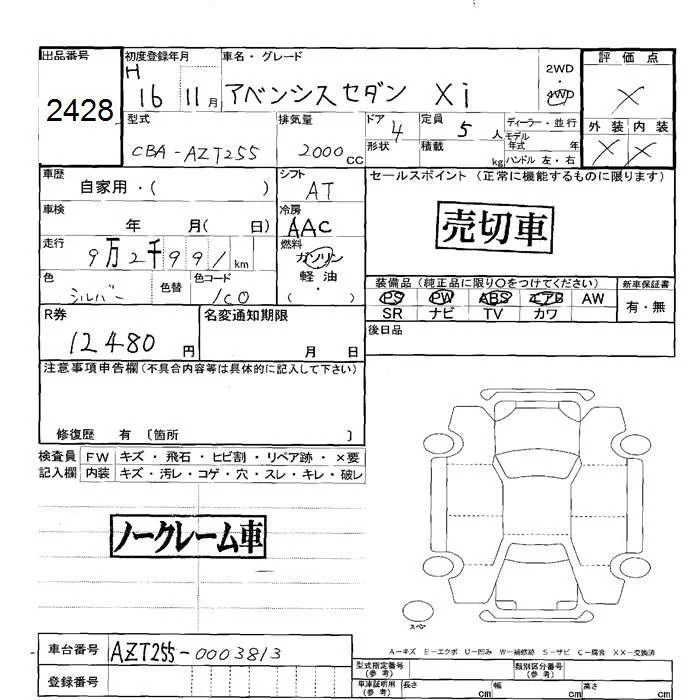 出品番号
2428
初度登録年月
H
16 11月
車名・グレード
アベンシスセダン Xi
2WD
・
4WD
評価点
×
外装 内装
× ×
型式
CBA-AZT255
排気量
2000cc
ドア 4
形状
定員 5 人
積載 kg
ディーラー・並行
モデル
年式 年
ハンドル 左・右
車歴
自家用・( )
シフト
AT
セールスポイント (正常に機能するものに限ります)
売切車
車検
年 月( 日)
冷房
AAC
走行
9万2千991km
燃料
ガソリン
軽油
( ・ )
色
シルバー
色替
色コード
1C0
装備品 (純正品に限り〇をつけてください)
PS PW ABS エアB AW
SR ナビ TV カワ
新車保証書
有・無
R券
12480円
名変通知期限
月 日
後日品
注意事項申告欄(不具合内容等は具体的に記入して下さい)
修復歴 有 〔箇所 〕
検査員
記入欄
FW キズ・飛石・ヒビ割・リペア跡・×要
内装 キズ・汚レ・コゲ・穴・スレ・キレ・破レ
ノークレーム車
スペア
A−キズ E−エクボ U−凹み W−補修跡 S−サビ C−腐食 XX−交換済
車台番号 AZT255-0003813
登録番号
型式指定番号
(参考)
類別区分番号
(参考)
車庫証明用
(参考)
長さ cm 幅 cm 高さ cm